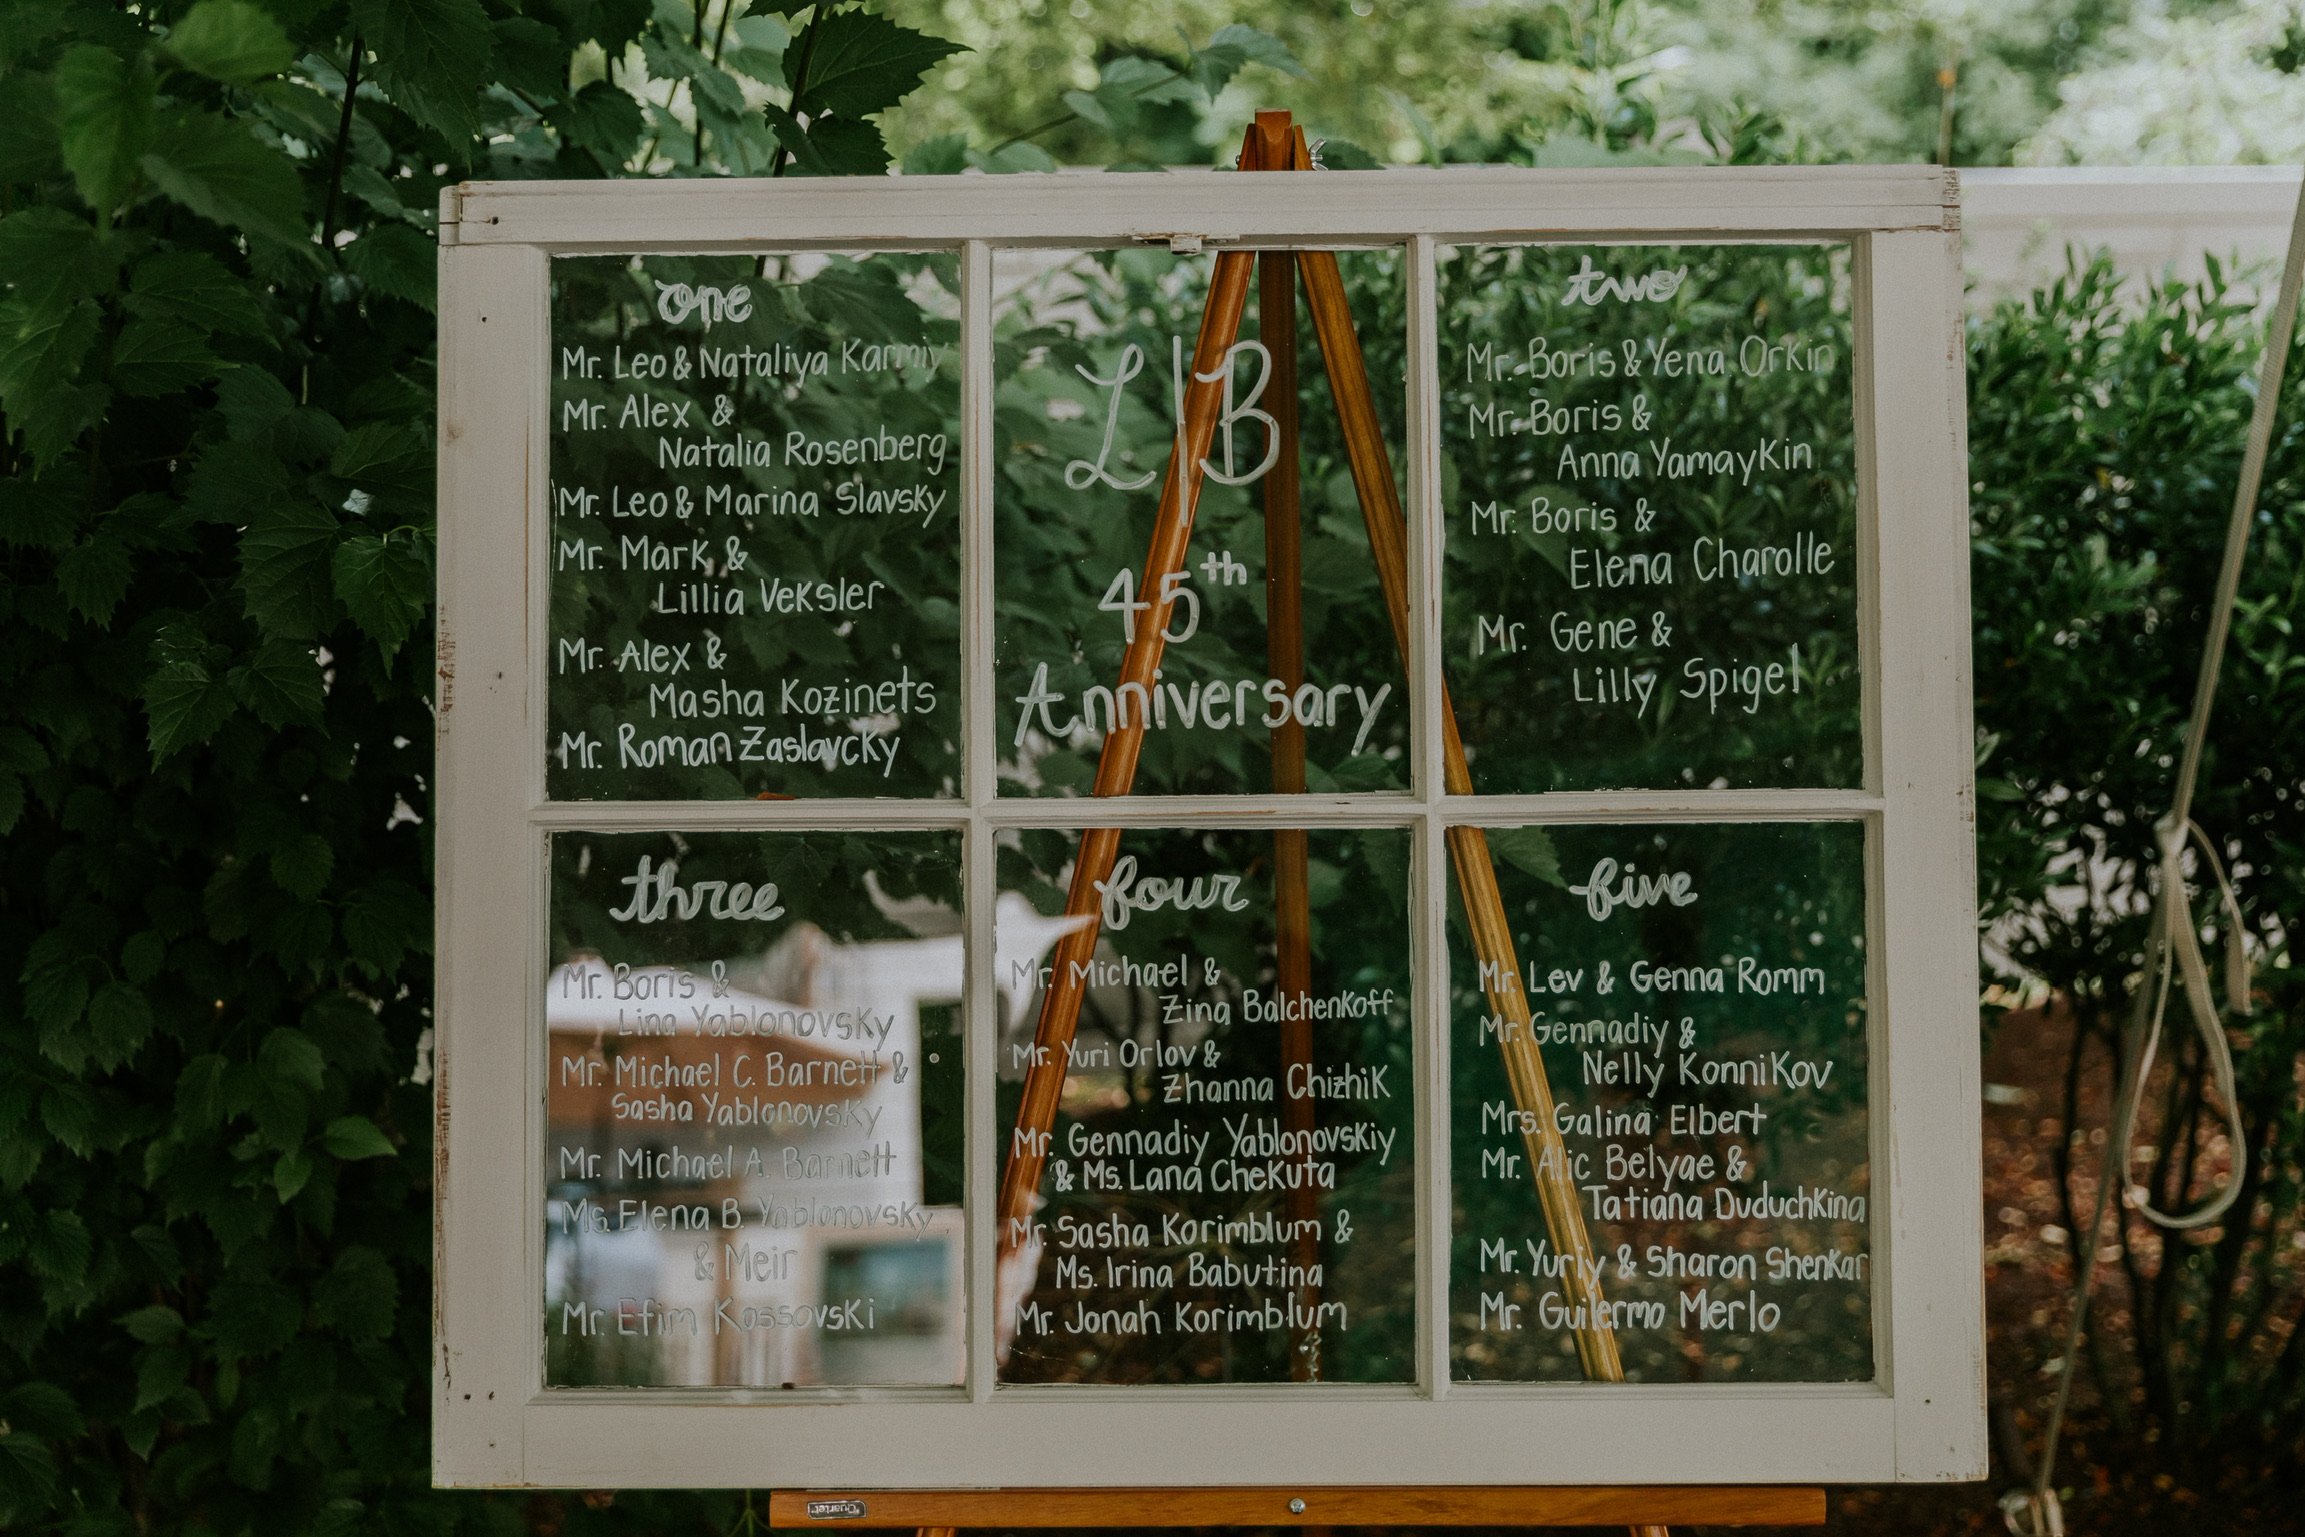 one
Mr. Leo & Nataliya Karmiy
Mr. Alex &
Natalia Rosenberg
Mr. Leo & Marina Slavsky
Mr. Mark &
Lillia Veksler
Mr. Alex &
Masha Kozinets
Mr. Roman Zaslavcky
L|B
45th
Anniversary
two
Mr. Boris & Yena Orkin
Mr. Boris &
Anna Yamaykin
Mr. Boris &
Elena Charolle
Mr. Gene &
Lilly Spigel
three
Mr. Boris &
Lina Yablonovsky
Mr. Michael C. Barnett &
Sasha Yablonovsky
Mr. Michael A. Barnett
Ms. Elena B. Yablonovsky
& Meir
Mr. Efim Kossovski
four
Mr. Michael &
Zina Balchenkoff
Mr. Yuri Orlov &
Zhanna Chizhik
Mr. Gennadiy Yablonovskiy
& Ms. Lana Chekuta
Mr. Sasha Korimblum &
Ms. Irina Babutina
Mr. Jonah Korimblum
five
Mr. Lev & Genna Romm
Mr. Gennadiy &
Nelly Konnikov
Mrs. Galina Elbert
Mr. Alic Belyae &
Tatiana Duduchkina
Mr. Yuriy & Sharon Shenkar
Mr. Guilermo Merlo
Quartet